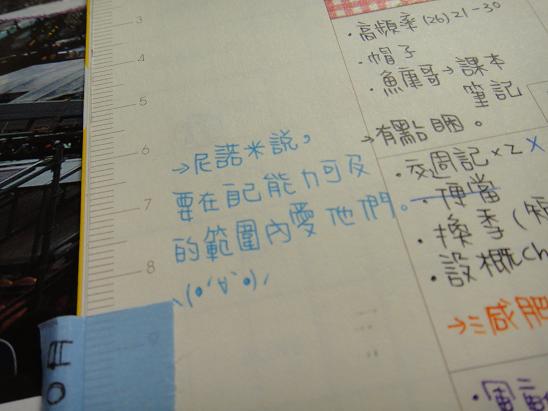 3
4
5
6
7
8
9
→尼諾米說，
要在自己能力可及
的範圍內愛他們。
\(•'∀'•)/
10月
·高頻率(26)21-30
·帽子
·魚庫哥→課本
筆記
→有點睏。
·交周記×2 ×
·便當
·換季(短
·設概(Ch
→減肥
·軍